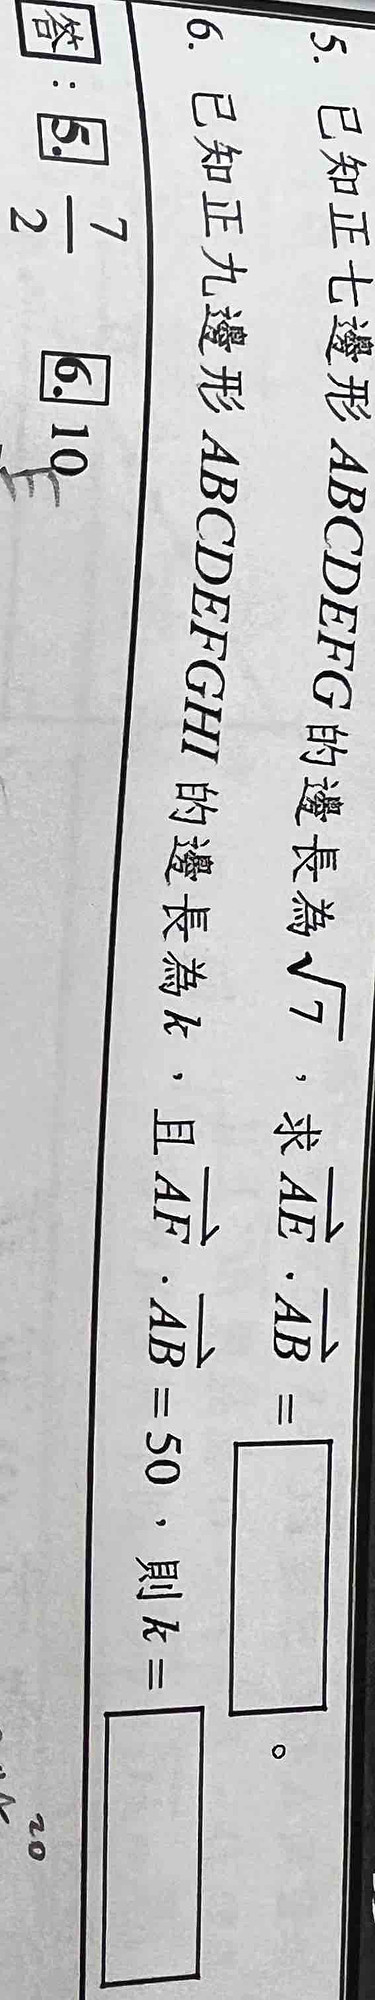 5. 已知正七邊形 ABCDEFG 的邊長為 √7 ，求 $\overrightarrow{AE} \cdot \overrightarrow{AB}$ = 。
6. 已知正九邊形 ABCDEFGHI 的邊長為 k ，且 $\overrightarrow{AF} \cdot \overrightarrow{AB}$ = 50 ，則 k =
答 : 5. 7/2 6. 10
20